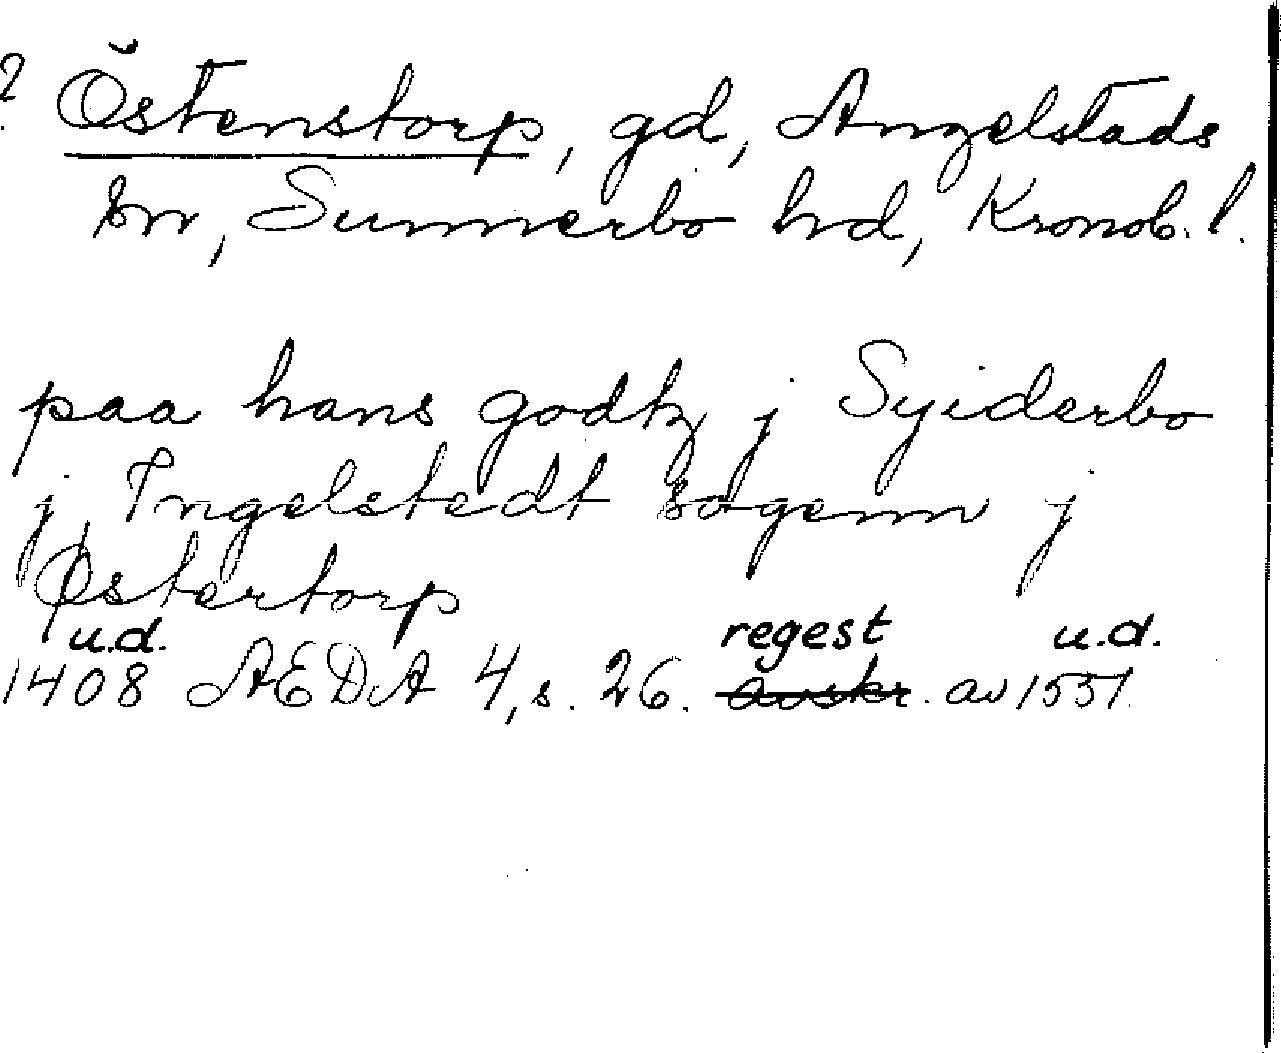 ? Östenstorp, gd, Angelstads
sn, Sunnerbo hrd, Kronob. l.
paa hans godtz j Syiderbo
j Ingelstedt sogenn j
Østertorp
u.d. regest u.d.
1408 AEDA 4, s. 26. avskr. av 1551